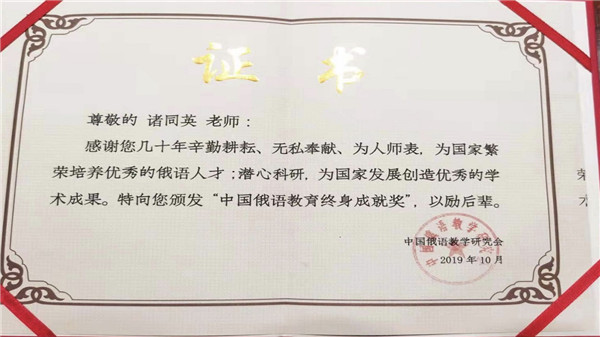 证书
尊敬的 诸同英 老师：
感谢您几十年辛勤耕耘、无私奉献、为人师表，为国家繁
荣培养优秀的俄语人才；潜心科研，为国家发展创造优秀的学
术成果。特向您颁发“中国俄语教育终身成就奖”，以励后辈。
中国俄语教学研究会
2019年10月
中国俄语教学研究会